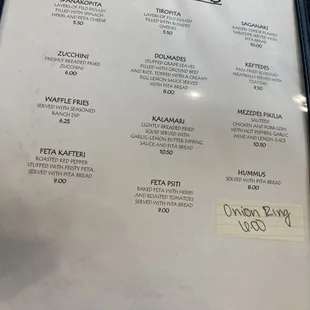 SPANAKOPITA
LAYERS OF FILO DOUGH
HERBS AND FETA CHEESE
5.50
TIROPITA
LAYERS OF FILO DOUGH
WITH
CHEESE
5.50
SAGANAKI
CHEESE
TABLESIDE SERVED WITH
PITA BREAD
10.00
ZUCCHINI
FRESHLY BREADED FRIED
ZUCCHINI
6.00
DOLMADES
STUFFED GRAPE LEAVES
FILLED WITH GROUND BEEF
AND RICE, TOPPED WITH A CREAMY
EGG LEMON SAUCE SERVED
WITH PITA BREAD
8.00
KEFTEDES
PAN-FRIED SEASONED
MEATBALLS SERVED WITH
10.50
WAFFLE FRIES
SERVED WITH SEASONED
RANCH DIP
6.25
KALAMARI
LIGHTLY BREADED FRIED
SQUID SERVED WITH
GARLIC-LEMON BUTTER DIPPING
SAUCE AND PITA BREAD
10.50
MEZEDES PIKILIA
SAUTEED
CHICKEN AND PORK LOIN
WITH HOT PEPPERS, GARLIC
WINE AND LEMON JUICE
10.50
FETA KAFTERI
ROASTED RED PEPPER
STUFFED WITH FRISTY FETA,
SERVED WITH PITA BREAD
9.00
FETA PSITI
BAKED FETA WITH HERBS
AND ROASTED TOMATOES
SERVED WITH PITA BREAD
9.00
HUMMUS
SERVED WITH PITA BREAD
8.00
Onion Ring
6.00